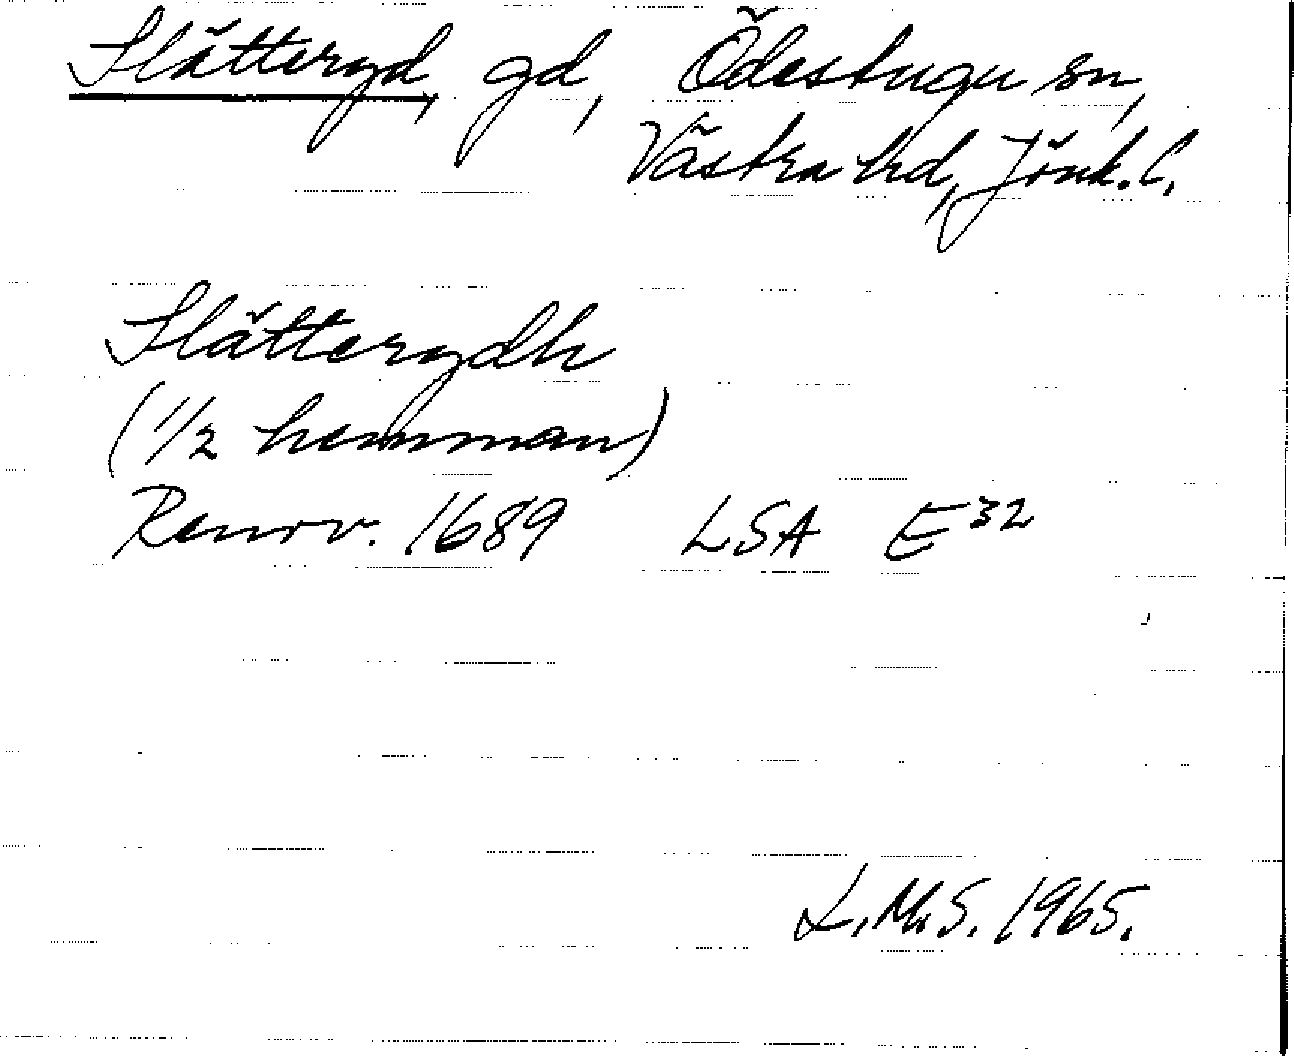 Slätteryd, gd, Ödestugu sn,
Västra hd, Jönk. l.
Slätterydh
(1/2 hemman)
Renov. 1689 LSA E32
L.M.S. 1965.